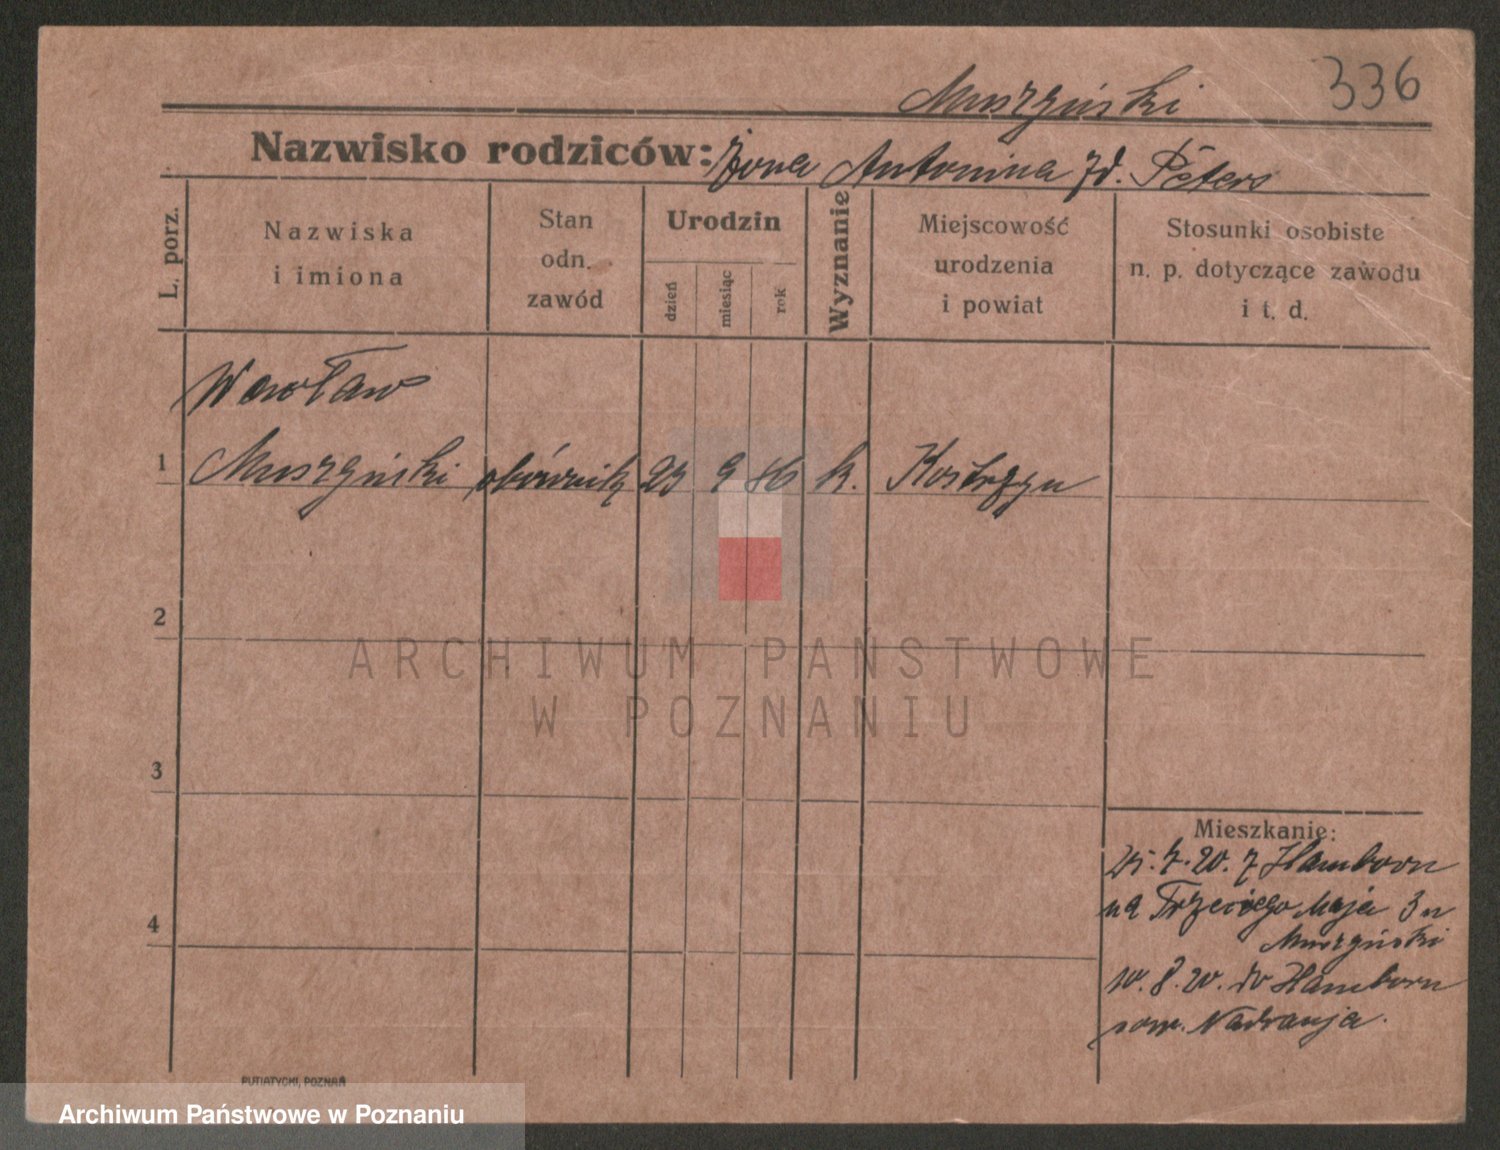 336
Muszyński
Nazwisko rodziców: Żona Antonina zd. Peters
L. porz.
Nazwiska
i imiona
Stan
odn.
zawód
Urodzin
dzień
miesiąc
rok
Wyznanie
Miejscowość
urodzenia
i powiat
Stosunki osobiste
n. p. dotyczące zawodu
i t. d.
Wacław
1 Muszyński 23 9 86 k. Kostrzyn
2
ARCHIWUM PAŃSTWOWE
W POZNANIU
3
4
Mieszkanie:
25.7.20. z Hamborn
na Trzeciego Maja 3 u
Muszyński
10.8.20. do Hamborn
PUTIATYCKI, POZNAŃ
Archiwum Państwowe w Poznaniu